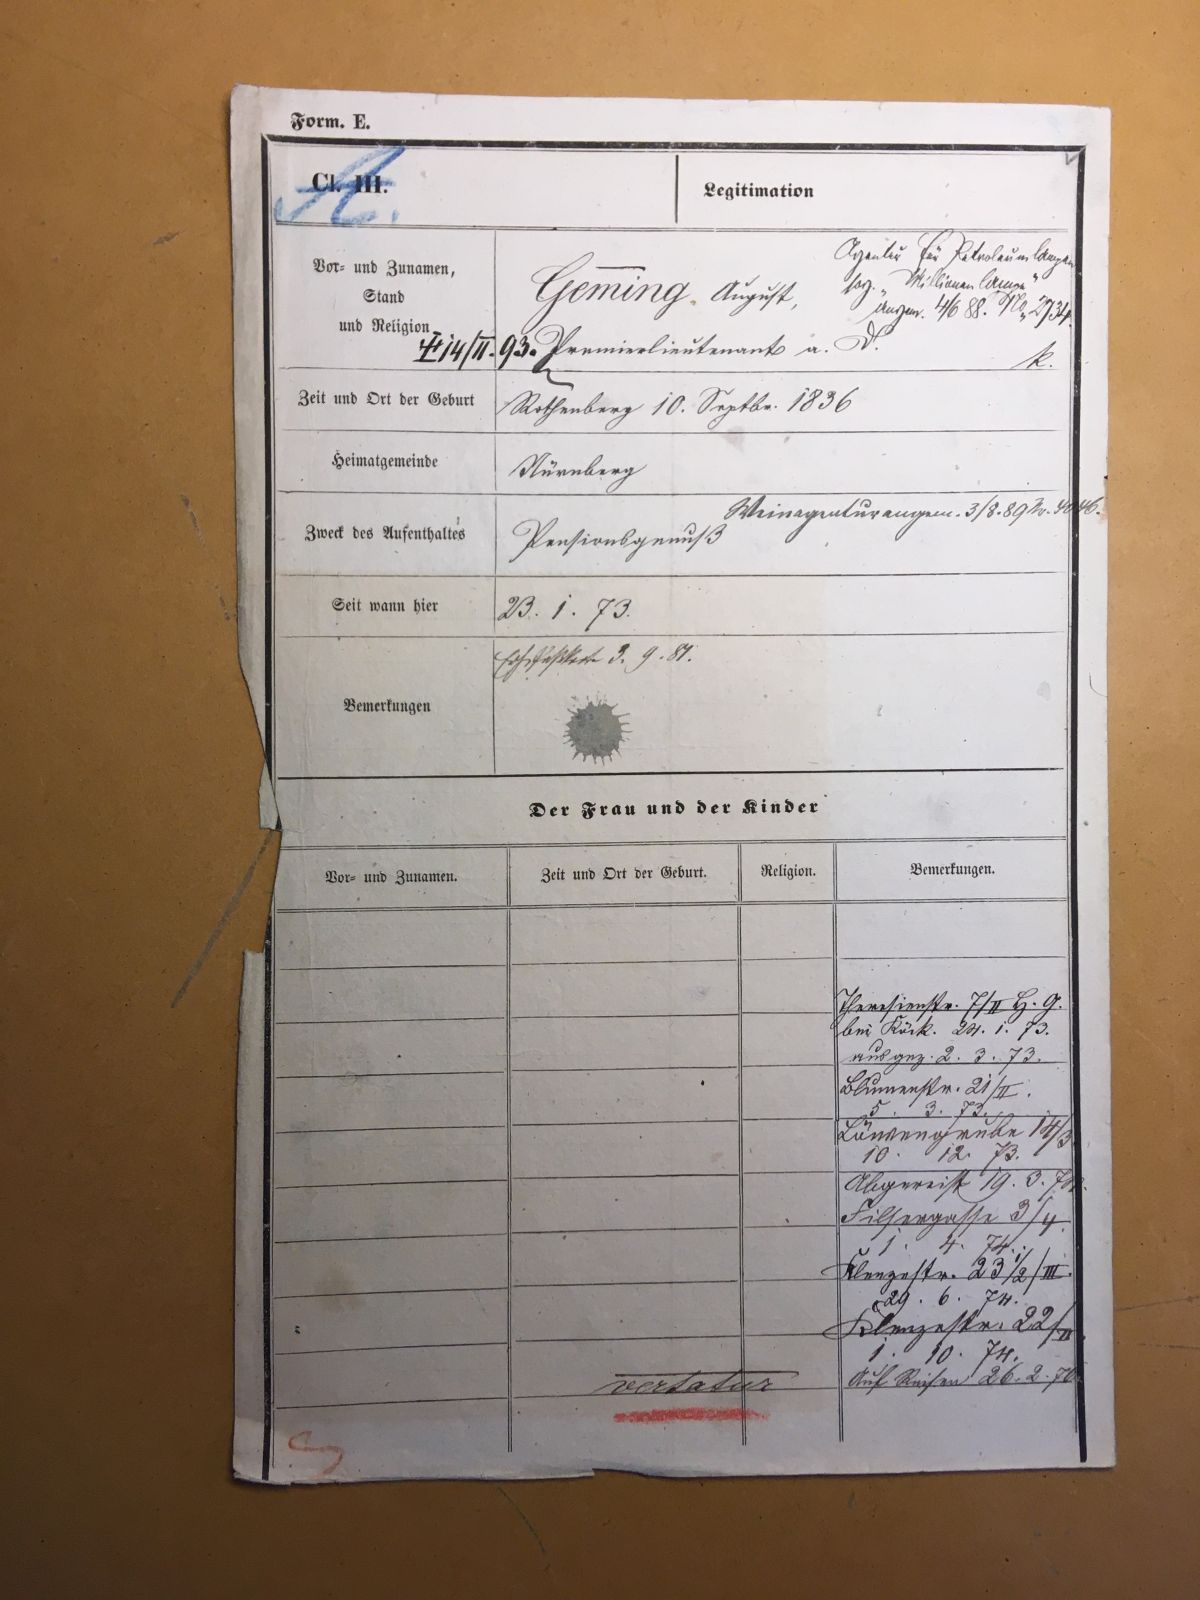 Form. E.
Cl. III.
A.
Legitimation
Vor- und Zunamen,
Stand
und Religion
Geming August,
Agentur für Petroleumlampen
sog. "Millionenlampe"
angem. 4/6 88. No 2734.
14/II. 93. Premierlieutenant a. D.
k.
Zeit und Ort der Geburt
Rothenberg 10. Septbr. 1836
Heimatgemeinde
Nürnberg
Weinagentur angem. 3/8. 89 No. 4046.
Zweck des Aufenthaltes
Pensionsgenuß
Seit wann hier
23. 1. 73.
Bemerkungen
3. 9. 81.
Der Frau und der Kinder
Vor- und Zunamen.
Zeit und Ort der Geburt.
Religion.
Bemerkungen.
Theresienstr. 7/II H. G.
bei Köck. 24. 1. 73.
ausgez. 2. 3. 73.
Blumenstr. 21/II.
5. 3. 73.
Löwengrube 14/3
10. 12. 73.
Abgereist 19. 3. 74.
Filsergasse 3/4.
1. 4. 74.
Klenzestr. 23 1/2/III.
29. 6. 74.
Klenzestr. 22/II
1. 10. 74.
Auf Reisen 26. 2. 76
vertatur